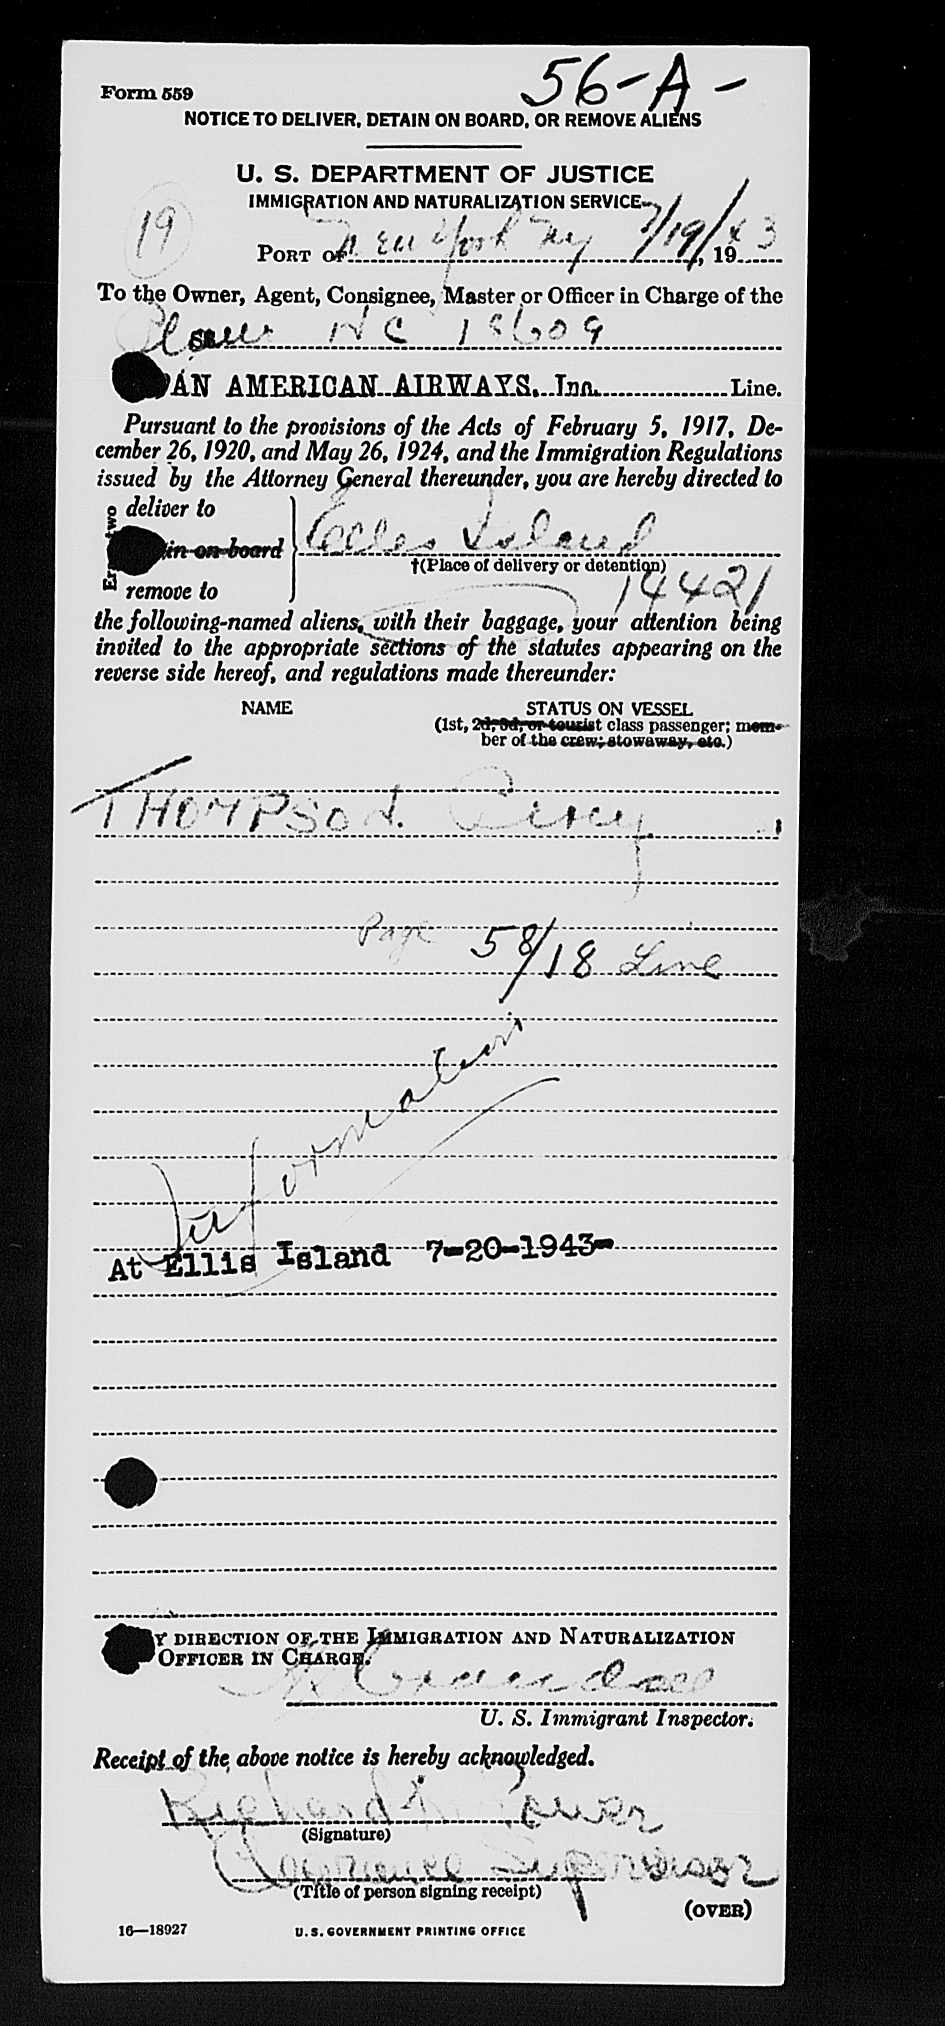 56-A-
Form 559
NOTICE TO DELIVER, DETAIN ON BOARD, OR REMOVE ALIENS
U. S. DEPARTMENT OF JUSTICE
IMMIGRATION AND NATURALIZATION SERVICE
19
PORT OF New York NY 7/19/, 1943
To the Owner, Agent, Consignee, Master or Officer in Charge of the
SS. Plane NC 18609
PAN AMERICAN AIRWAYS, Inc. Line.
Pursuant to the provisions of the Acts of February 5, 1917, De-
cember 26, 1920, and May 26, 1924, and the Immigration Regulations
issued by the Attorney General thereunder, you are hereby directed to
deliver to
in on board Ellis Island
†(Place of delivery or detention)
remove to 14421
the following-named aliens, with their baggage, your attention being
invited to the appropriate sections of the statutes appearing on the
reverse side hereof, and regulations made thereunder:
NAME STATUS ON VESSEL
(1st, 2d, 3d, or tourist class passenger; mem-
ber of the crew, stowaway, etc.)
THOMPSON. Percy 1
Page 58/18 Line
Information
At Ellis Island 7-20-1943-
BY DIRECTION OF THE IMMIGRATION AND NATURALIZATION
OFFICER IN CHARGE.
Crandall
U. S. Immigrant Inspector.
Receipt of the above notice is hereby acknowledged.
Richard N. Power
(Signature)
Clearance Supervisor
(Title of person signing receipt)
(OVER)
16—18927 U. S. GOVERNMENT PRINTING OFFICE